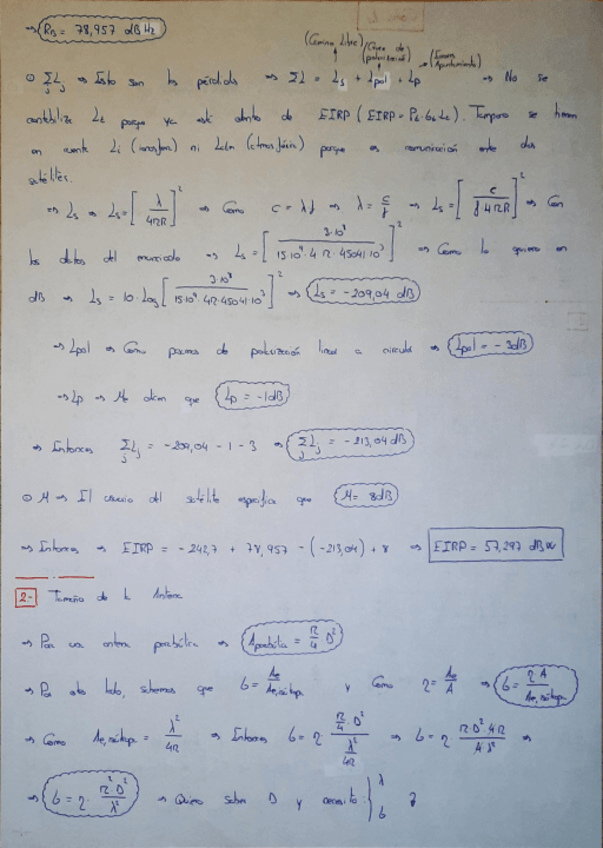 ⇒ R_B = 78,957 dBHz
(Camino Libre)
(Cruce de polarización)
⊙ Σ_j L_j ⇒ Esto son las pérdidas ⇒ ΣL = L_s + L_pol + L_p ⇒ No se
contabiliza L_t porque ya está dentro de EIRP (EIRP = P_t·G_t·L_t). Tampoco se tienen
en cuenta L_i (ionosfera) ni L_atm (atmosférica) porque es comunicación entre dos
satélites.
⇒ L_s ⇒ L_s = [λ / 4πR]² ⇒ Como c = λf ⇒ λ = c/f ⇒ L_s = [c / f4πR]² ⇒ Con
los datos del enunciado ⇒ L_s = [3·10⁸ / 15·10⁹·4·π·45041·10³]² ⇒ Como lo quiero en
dB ⇒ L_s = 10·Log[3·10⁸ / 15·10⁹·4π·45041·10³]² ⇒ L_s = -209,04 dB
⇒ L_pol ⇒ Como pasamos de polarización lineal a circular ⇒ L_pol = -3dB
⇒ L_p ⇒ Me dicen que L_p = -1dB
⇒ Entonces Σ_j L_j = -209,04 - 1 - 3 ⇒ Σ_j L_j = -213,04 dB
⊙ M ⇒ El usuario del satélite especifica que M = 8dB
⇒ Entonces ⇒ EIRP = -242,7 + 78,957 - (-213,04) + 8 ⇒ EIRP = 57,297 dBW
2.- Tamaño de la Antena
⇒ Para una antena parabólica ⇒ A_parabólica = π/4 D²
⇒ Por otro lado, sabemos que G = A_e / A_e,isótropa y Como η = A_e / A ⇒ G = ηA / A_e,isótropa
⇒ Como A_e,isótropa = λ² / 4π ⇒ Entonces G = η · (π/4 · D²) / (λ² / 4π) ⇒ G = η π·D²·4π / 4·λ² ⇒
⇒ G = η · π²·D² / λ² ⇒ Quiero saber D y necesito { λ G ?